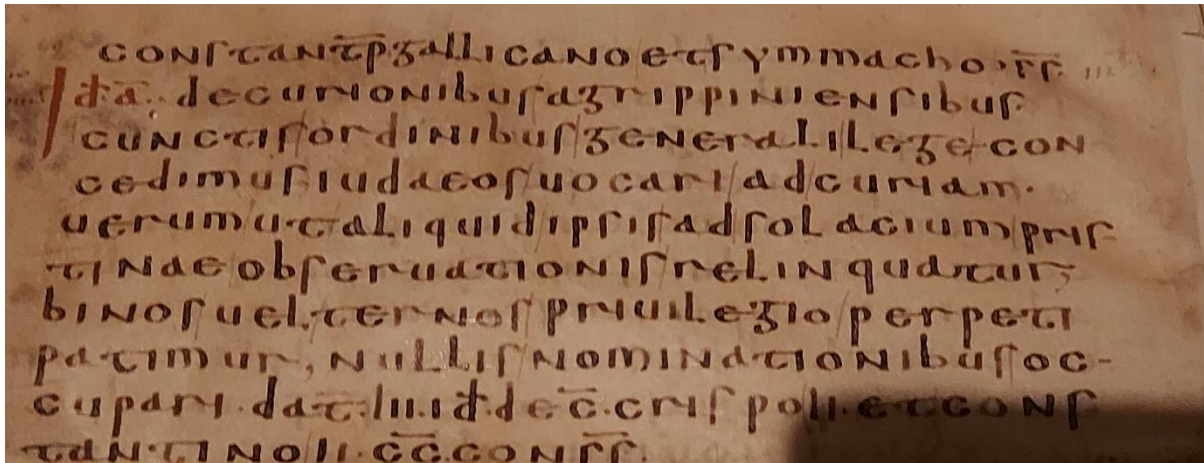 constant̄p̄gallicanoetsymmacho·s̄s̄
id̄ā. decurionibusagrippiniensibus
cunctisordinibusgeneralilegecon
cedimusiudaeosuocariadcuriam.
uerumutaliquidipsisadsolaciumpris
tinaeobseruationisrelinquatur;
binosuelternospriuilegioperpeti
patimur, nullisnominationibusoc-
cupari.dat̄.iii.id̄.dec̄.crispoii.etcons
tantinoii.c̄c̄.cons̄s̄.